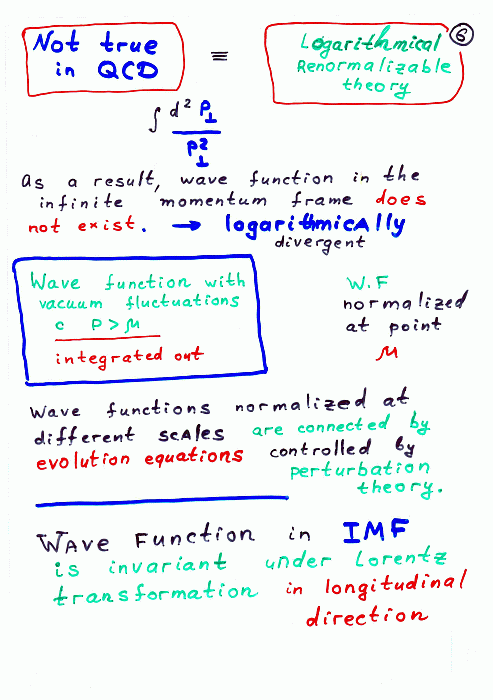 Not true
in QCD
≡
Logarithmical
Renormalizable
theory
6
∫ d² p⊥
p²⊥
as a result, wave function in the
infinite momentum frame does
not exist. → logarithmically
divergent
Wave function with
vacuum fluctuations
c p > μ
integrated out
W.F
normalized
at point
μ
Wave functions normalized at
different scales are connected by
evolution equations controlled by
perturbation
theory.
Wave Function in IMF
is invariant under Lorentz
transformation in longitudinal
direction